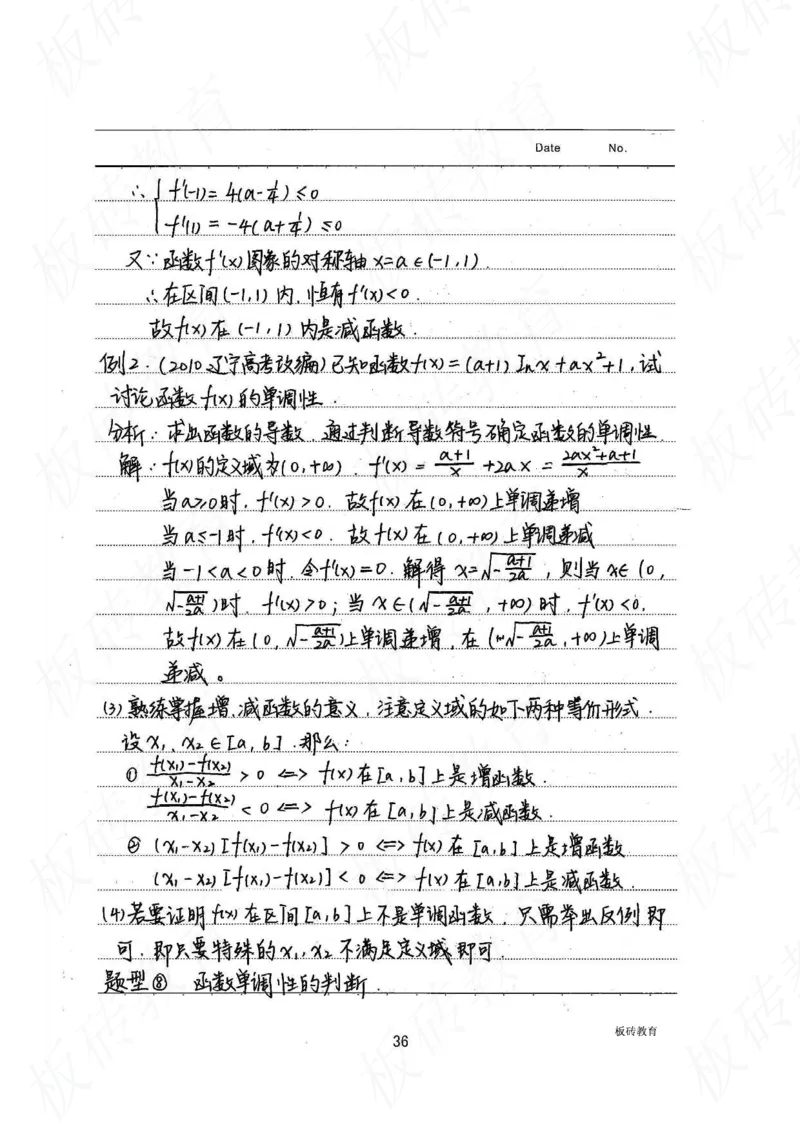 Date No.
∴ { f'(-1) = 4(a-1/4) ≤ 0
f'(1) = -4(a+1/4) ≤ 0
又∵函数f'(x)图象的对称轴x=a∈(-1,1)
∴在区间(-1,1)内,恒有f'(x)<0.
故f(x)在(-1,1)内是减函数.
例2.(2010辽宁高考改编)已知函数f(x)=(a+1)lnx+ax²+1,试
讨论函数f(x)的单调性.
分析:求出函数的导数,通过判断导数符号确定函数的单调性.
解:f(x)的定义域为(0,+∞). f'(x) = (a+1)/x + 2ax = (2ax²+a+1)/x
当a≥0时,f'(x)>0. 故f(x)在(0,+∞)上单调递增
当a≤-1时,f'(x)<0. 故f(x)在(0,+∞)上单调递减
当-1<a<0时,令f'(x)=0.解得x=√(-(a+1)/2a),则当x∈(0,
√(-(a+1)/2a))时. f'(x)>0;当x∈(√(-(a+1)/2a),+∞)时,f'(x)<0.
故f(x)在(0,√(-(a+1)/2a))上单调递增,在(√(-(a+1)/2a),+∞)上单调
递减。
(3)熟练掌握增、减函数的意义,注意定义域的如下两种等价形式.
设x₁、x₂∈[a,b].那么:
① (f(x₁)-f(x₂))/(x₁-x₂) > 0 <=> f(x)在[a,b]上是增函数.
(f(x₁)-f(x₂))/(x₁-x₂) < 0 <=> f(x)在[a,b]上是减函数.
② (x₁-x₂)[f(x₁)-f(x₂)] > 0 <=> f(x)在[a,b]上是增函数
(x₁-x₂)[f(x₁)-f(x₂)] < 0 <=> f(x)在[a,b]上是减函数.
(4)若要证明f(x)在区间[a,b]上不是单调函数,只需举出反例即
可.即只要特殊的x₁,x₂不满足定义域即可.
题型⑧ 函数单调性的判断.
板砖教育
36